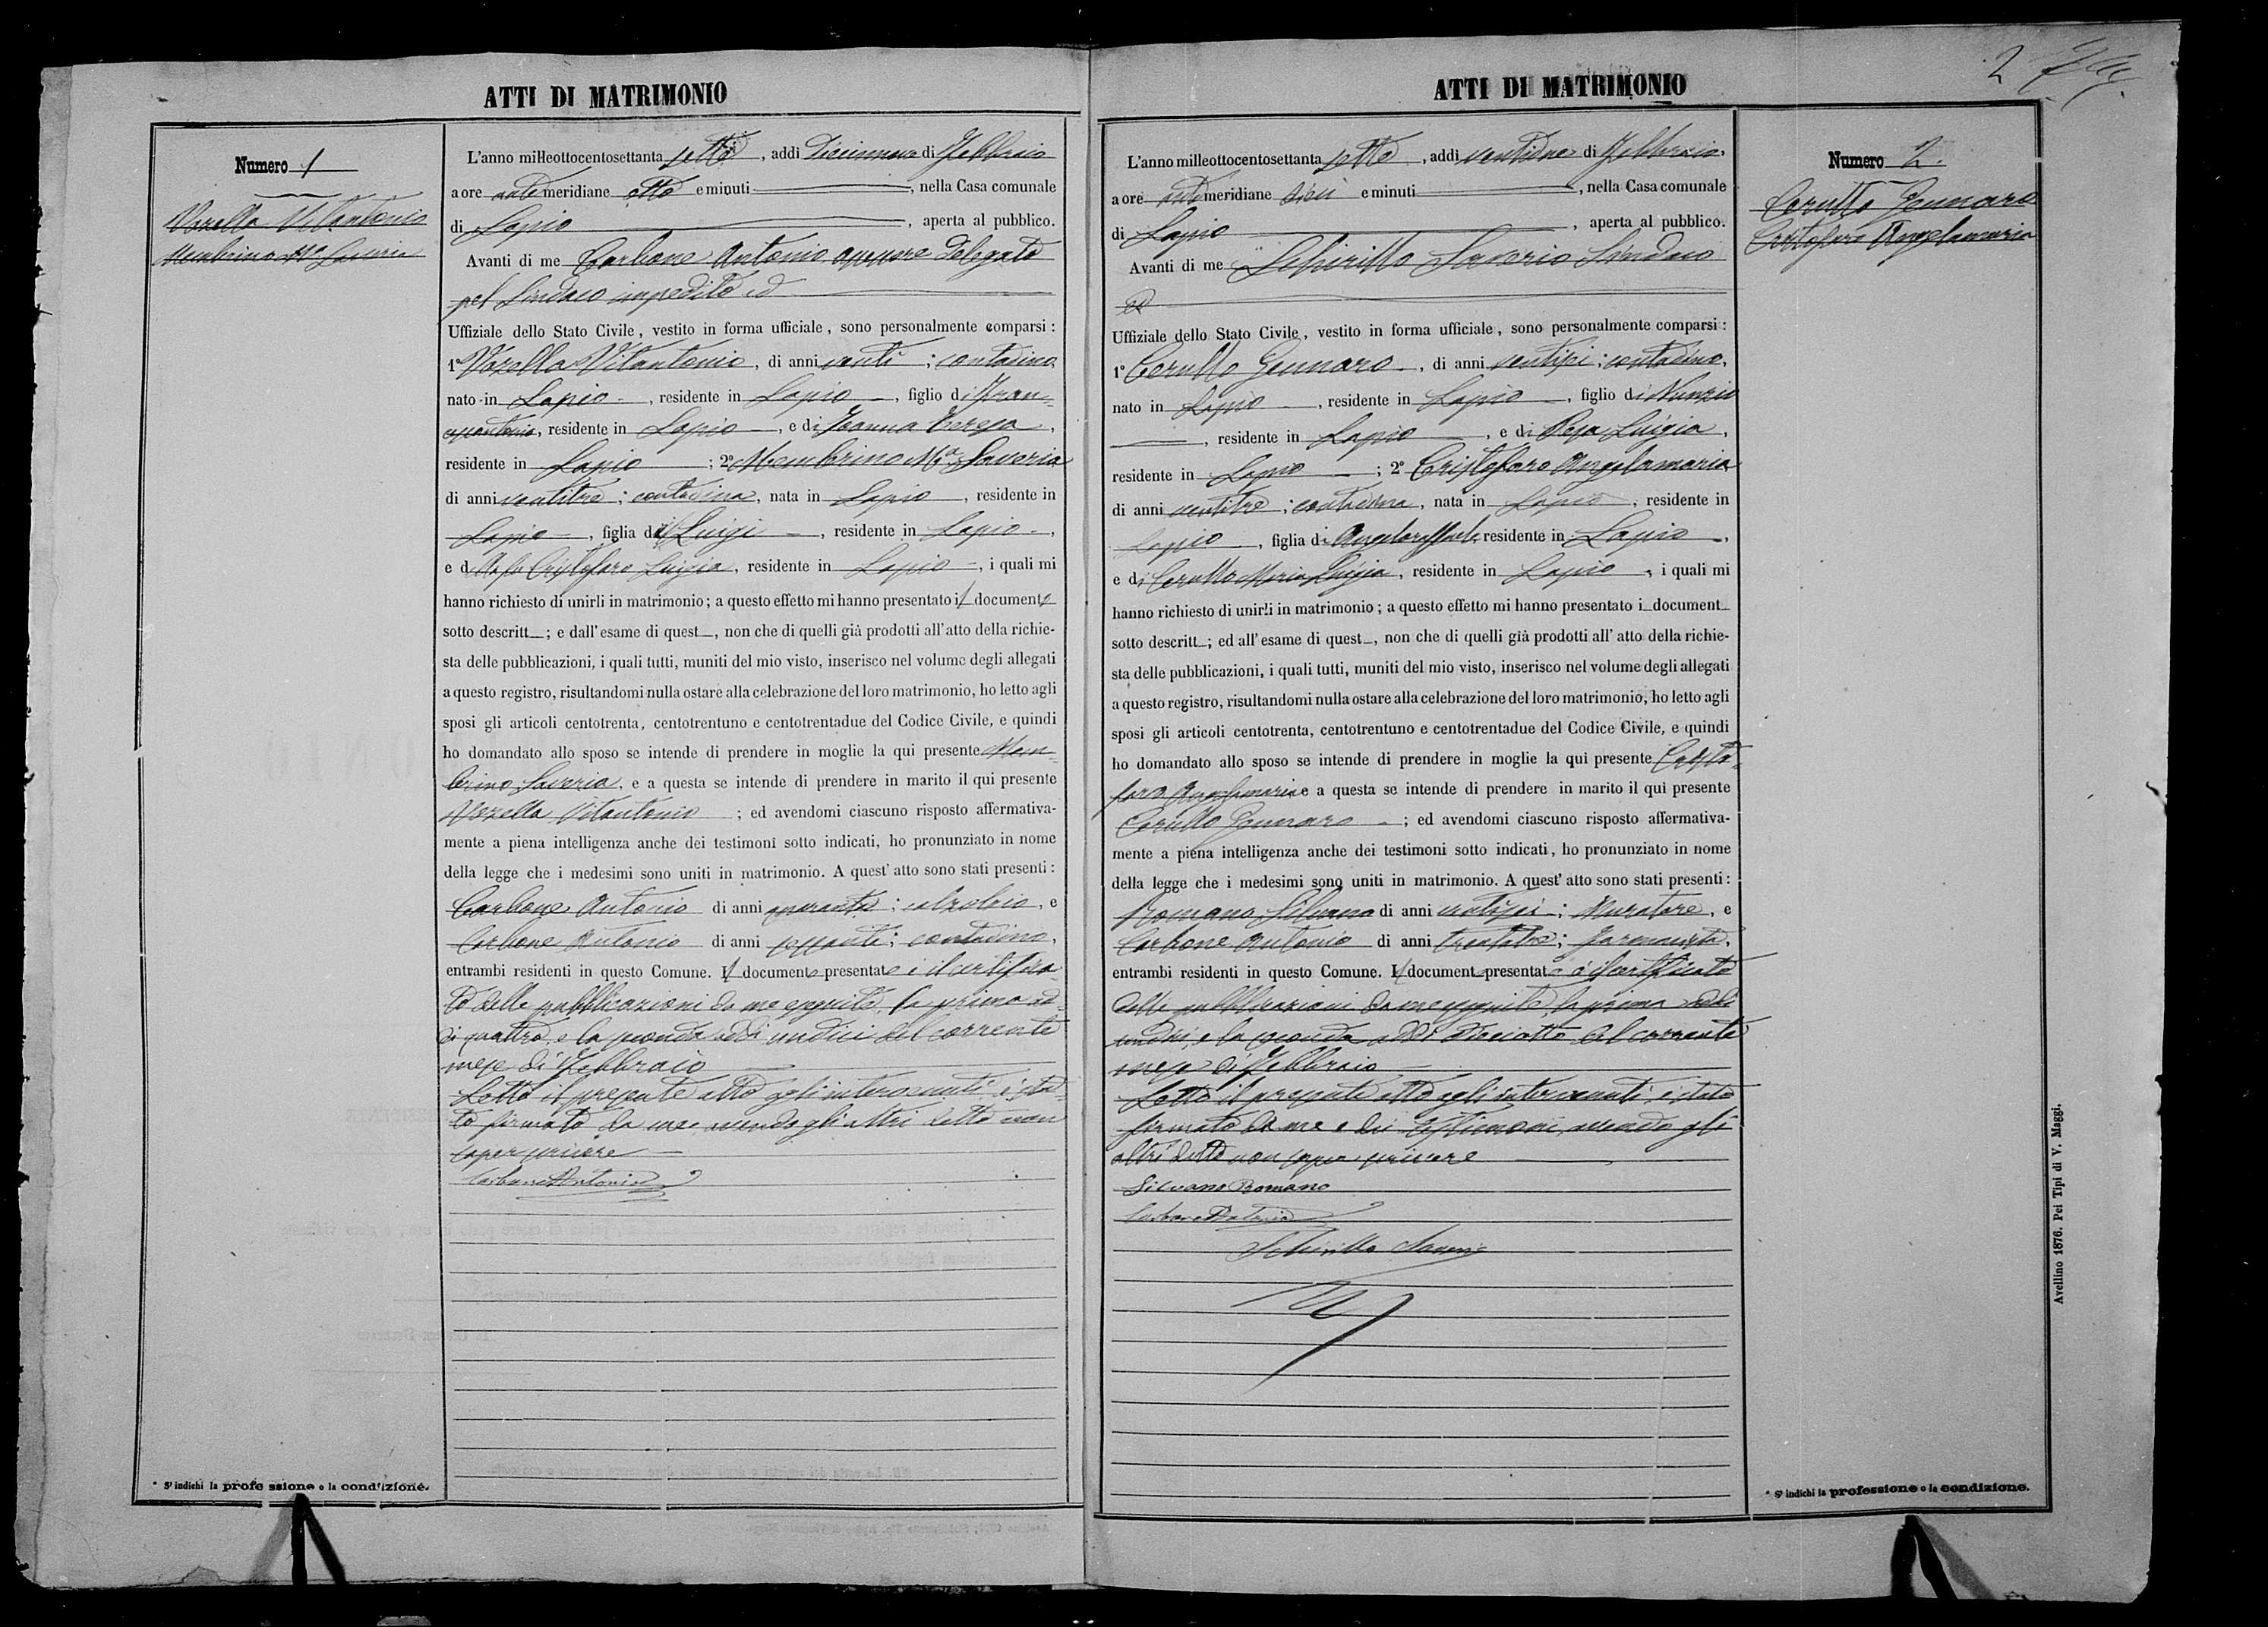 ATTI DI MATRIMONIO
Numero 1
Vozella Vitantonio
Membrino Ma Saveria
L'anno milleottocentosettanta sette, addì diecinnove di Febbraio
a ore antimeridiane otto e minuti, nella Casa comunale
di Lapio, aperta al pubblico.
Avanti di me Carbone Antonio assessore delegato
pel Sindaco impedito ed
Uffiziale dello Stato Civile, vestito in forma ufficiale, sono personalmente comparsi:
1° Vozella Vitantonio, di anni venti; contadino,
nato in Lapio, residente in Lapio, figlio di Fran=
residente in Lapio, e di Teresa,
residente in Lapio; 2° Membrino Ma Saveria
di anni ventitre; contadina, nata in Lapio, residente in
Lapio, figlia di Luigi, residente in Lapio,
e di Cristofaro Luigia, residente in Lapio, i quali mi
hanno richiesto di unirli in matrimonio; a questo effetto mi hanno presentato il documento
sotto descritt; e dall'esame di quest, non che di quelli già prodotti all'atto della richie-
sta delle pubblicazioni, i quali tutti, muniti del mio visto, inserisco nel volume degli allegati
a questo registro, risultandomi nulla ostare alla celebrazione del loro matrimonio, ho letto agli
sposi gli articoli centotrenta, centotrentuno e centotrentadue del Codice Civile, e quindi
ho domandato allo sposo se intende di prendere in moglie la qui presente Mem=
brino Saveria, e a questa se intende di prendere in marito il qui presente
Vozella Vitantonio; ed avendomi ciascuno risposto affermativa-
mente a piena intelligenza anche dei testimoni sotto indicati, ho pronunziato in nome
della legge che i medesimi sono uniti in matrimonio. A quest'atto sono stati presenti:
Carbone Antonio di anni quaranta; calzolaio, e
Carbone Antonio di anni sessanta; contadino,
entrambi residenti in questo Comune. Il documento presentato è il certifica=
to delle pubblicazioni da me eseguite, la prima ad=
dì quattro, e la seconda addì undici del corrente
mese di Febbraio
Letto il presente atto agli intervenuti è sta=
to firmato da me avendo gli altri detto non
saper scrivere
Carbone Antonio
* S' indichi la professione o la condizione.
ATTI DI MATRIMONIO
2
Numero 2.
Cerullo Gennaro
Cristofaro Angelamaria
L'anno milleottocentosettanta sette, addì ventidue di Febbraio,
a ore antimeridiane dieci e minuti, nella Casa comunale
di Lapio, aperta al pubblico.
Avanti di me Schirillo Saverio Sindaco
ed
Uffiziale dello Stato Civile, vestito in forma ufficiale, sono personalmente comparsi:
1° Cerullo Gennaro, di anni ventisei; contadino,
nato in Lapio, residente in Lapio, figlio di Nunzio
, residente in Lapio, e di Luigia,
residente in Lapio; 2° Cristofaro Angelamaria
di anni ventitre; contadina, nata in Lapio, residente in
Lapio, figlia di Angeloraffaele, residente in Lapio,
e di Cerullo Maria Luigia, residente in Lapio, i quali mi
hanno richiesto di unirli in matrimonio; a questo effetto mi hanno presentato i document
sotto descritt; ed all'esame di quest, non che di quelli già prodotti all'atto della richie-
sta delle pubblicazioni, i quali tutti, muniti del mio visto, inserisco nel volume degli allegati
a questo registro, risultandomi nulla ostare alla celebrazione del loro matrimonio, ho letto agli
sposi gli articoli centotrenta, centotrentuno e centotrentadue del Codice Civile, e quindi
ho domandato allo sposo se intende di prendere in moglie la qui presente Cristo=
faro Angelamaria e a questa se intende di prendere in marito il qui presente
Cerullo Gennaro; ed avendomi ciascuno risposto affermativa-
mente a piena intelligenza anche dei testimoni sotto indicati, ho pronunziato in nome
della legge che i medesimi sono uniti in matrimonio. A quest'atto sono stati presenti:
Romano Silvano di anni ventisei; Muratore, e
Carbone Antonio di anni trentatre; farmacista,
entrambi residenti in questo Comune. Il document presentato è il certificato
delle pubblicazioni da me eseguite, la prima addì
undici, e la seconda addì dieciotto del corrente
mese di Febbraio
Letto il presente atto agli intervenuti, è stato
firmato da me e dai testimoni, avendo gli
altri detto non saper scrivere
Silvano Romano
Carbone Antonio
Schirillo Saverio
* S' indichi la professione o la condizione.
Avellino 1876. Pei Tipi di V. Maggi.